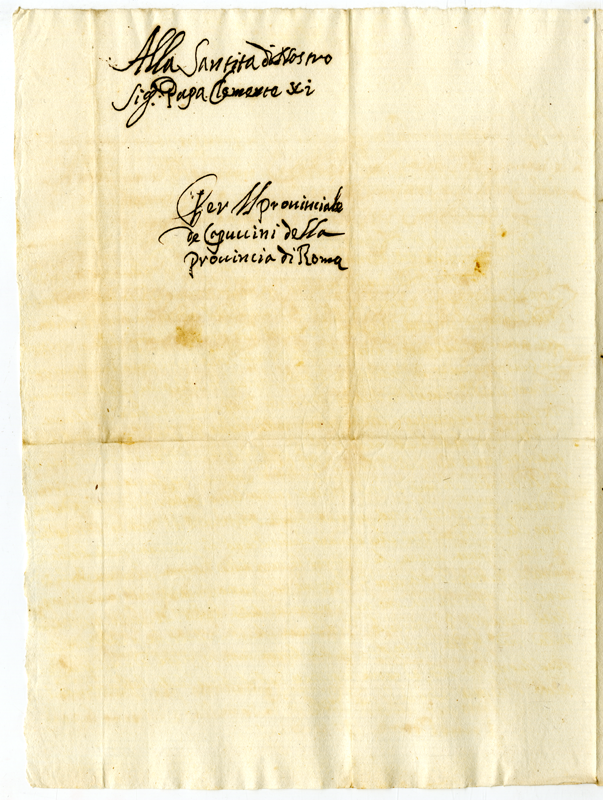 Alla Santita di Nostro
Sig.r Papa Clemente XI
Per Il Prouinciale
de Capuccini della
Prouincia di Roma